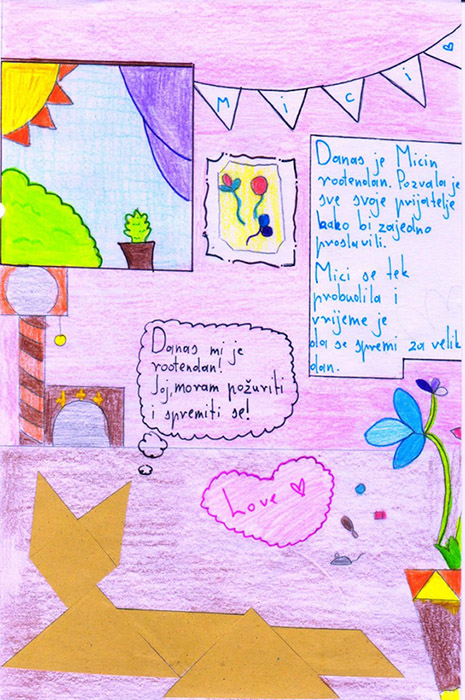 Mici
Danas je Micin
rođendan. Pozvala je
sve svoje prijatelje
kako bi zajedno
proslavili.
Mici se tek
probudila i
vrijeme je
da se spremi za velik
dan.
Danas mi je
rođendan!
Joj, moram požuriti
i spremiti se!
Love